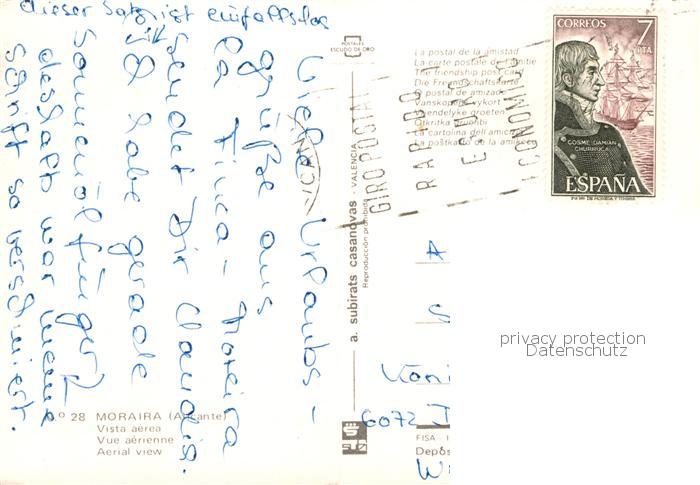 dieser Satz ist einfallslos
Viele Urlaubs-
grüße aus
La Finca - Moreira
sendet Dir Claudia.
Ich habe gerade
Sonnenöl Finger
deshalb war meine
Schrift so verschmiert.
Nº 28 MORAIRA (Alicante)
Vista aérea
Vue aérienne
Aerial view
POSTALES
ESCUDO DE ORO
a. subirats casanovas - VALENCIA
Reproducción prohibida
FISA - I
Depós
La postal de la amistad
La carte postale de l'amitié
The friendship post card
Die Freundschaftskarte
O postal de amizade
Vanskopens vykort
Vriendelyke groeten
Otkritka drujnbi
La cartolina dell'amicizia
GIRO POSTAL
RAPIDO
ECONOMI
CORREOS 7 PTA
COSME DAMIAN
CHURRUCA
ESPAÑA
A
S
Köni
6072 D
W
privacy protection
Datenschutz